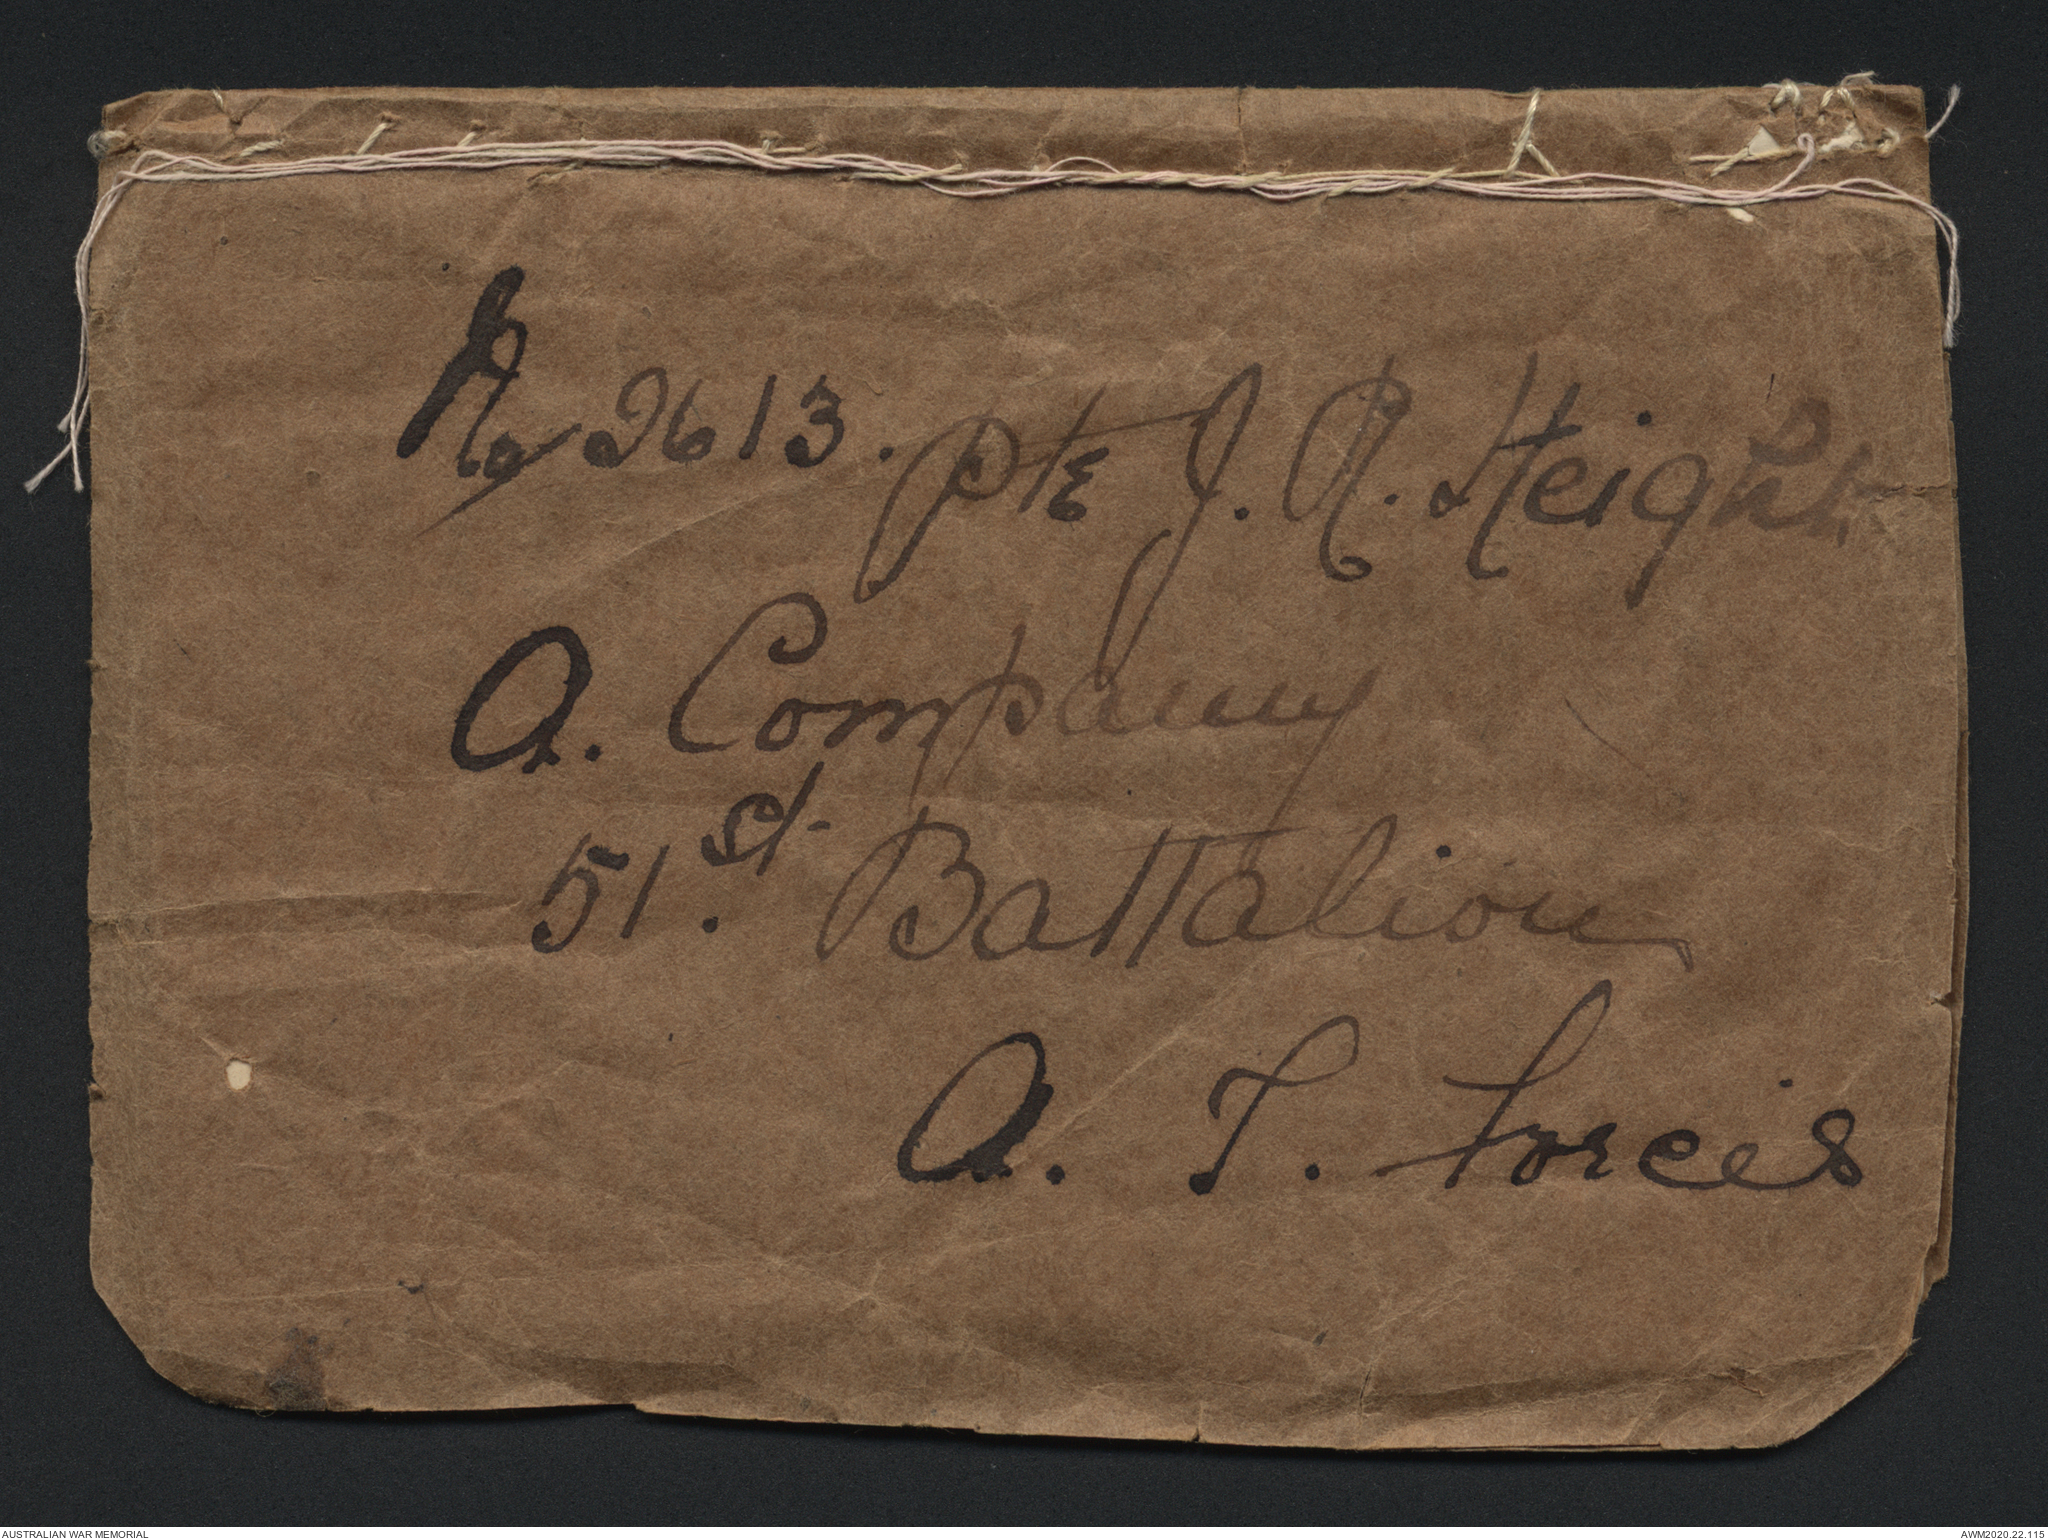 No 2613. Pte J. R. Height
A. Company
51.st Battalion
A. I. Forces
AUSTRALIAN WAR MEMORIAL
AWM2020.22.115